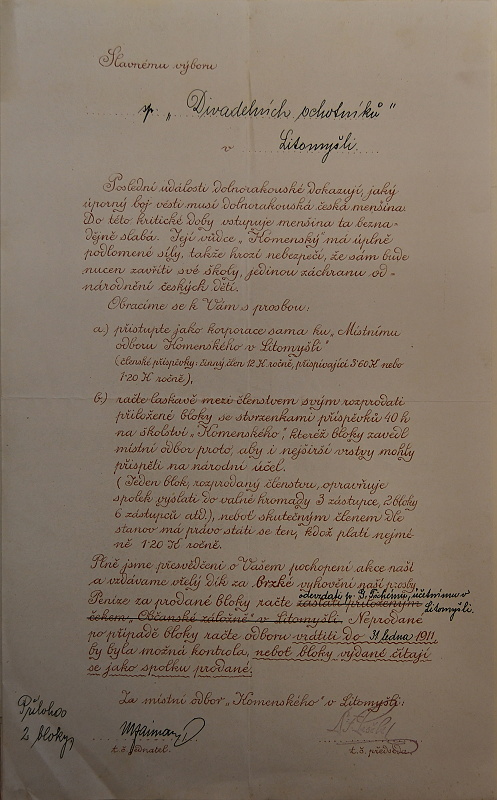 Slavnému výboru
sp. „Divadelních ochotníků"
v Litomyšli.
Poslední události dolnorakouské dokazují, jaký
úporný boj vésti musí dolnorakouská česká menšina.
Do této kritické doby vstupuje menšina ta bezna-
dějně slabá. Její vůdce „Komenský" má úplně
podlomené síly, takže hrozí nebezpečí, že sám bude
nucen zavříti své školy, jedinou záchranu od-
národnění českých dětí.
Obracíme se k Vám s prosbou:
a.) přistupte jako korporace sama ku „Místnímu
odboru Komenského v Litomyšli"
(členské příspěvky: činný člen 12 K ročně, přispívající 3·60 K nebo
1·20 K ročně),
b.) račte laskavě mezi členstvem svým rozprodati
přiložené bloky se stvrzenkami příspěvků 40 h
na školství „Komenského", kteréž bloky zavedl
místní odbor proto, aby i nejširší vrstvy mohly
přispěti na národní účel.
(Jeden blok, rozprodaný členstvu, opravňuje
spolek vyslati do valné hromady 3 zástupce, 2 bloky
6 zástupců atd.), neboť skutečným členem dle
stanov má právo státi se ten, kdož platí nejmé-
ně 1·20 K ročně.
Plně jsme přesvědčeni o Vašem pochopení akce naší
a vzdáváme vřelý dík za brzké vyhovění naší prosby.
odevzdati p. účetnímu v
Peníze za prodané bloky račte zaslati přiloženým
Litomyšli.
čekem, Občanské záložně v Litomyšli. Neprodané
po případě bloky račte odboru vrátiti do 31 ledna 1911,
by byla možná kontrola, neboť bloky vydané čítají
se jako spolku prodané.
Za místní odbor „Komenského" v Litomyšli:
Příloha
2 bloky
t.č. jednatel. t.č. předseda.